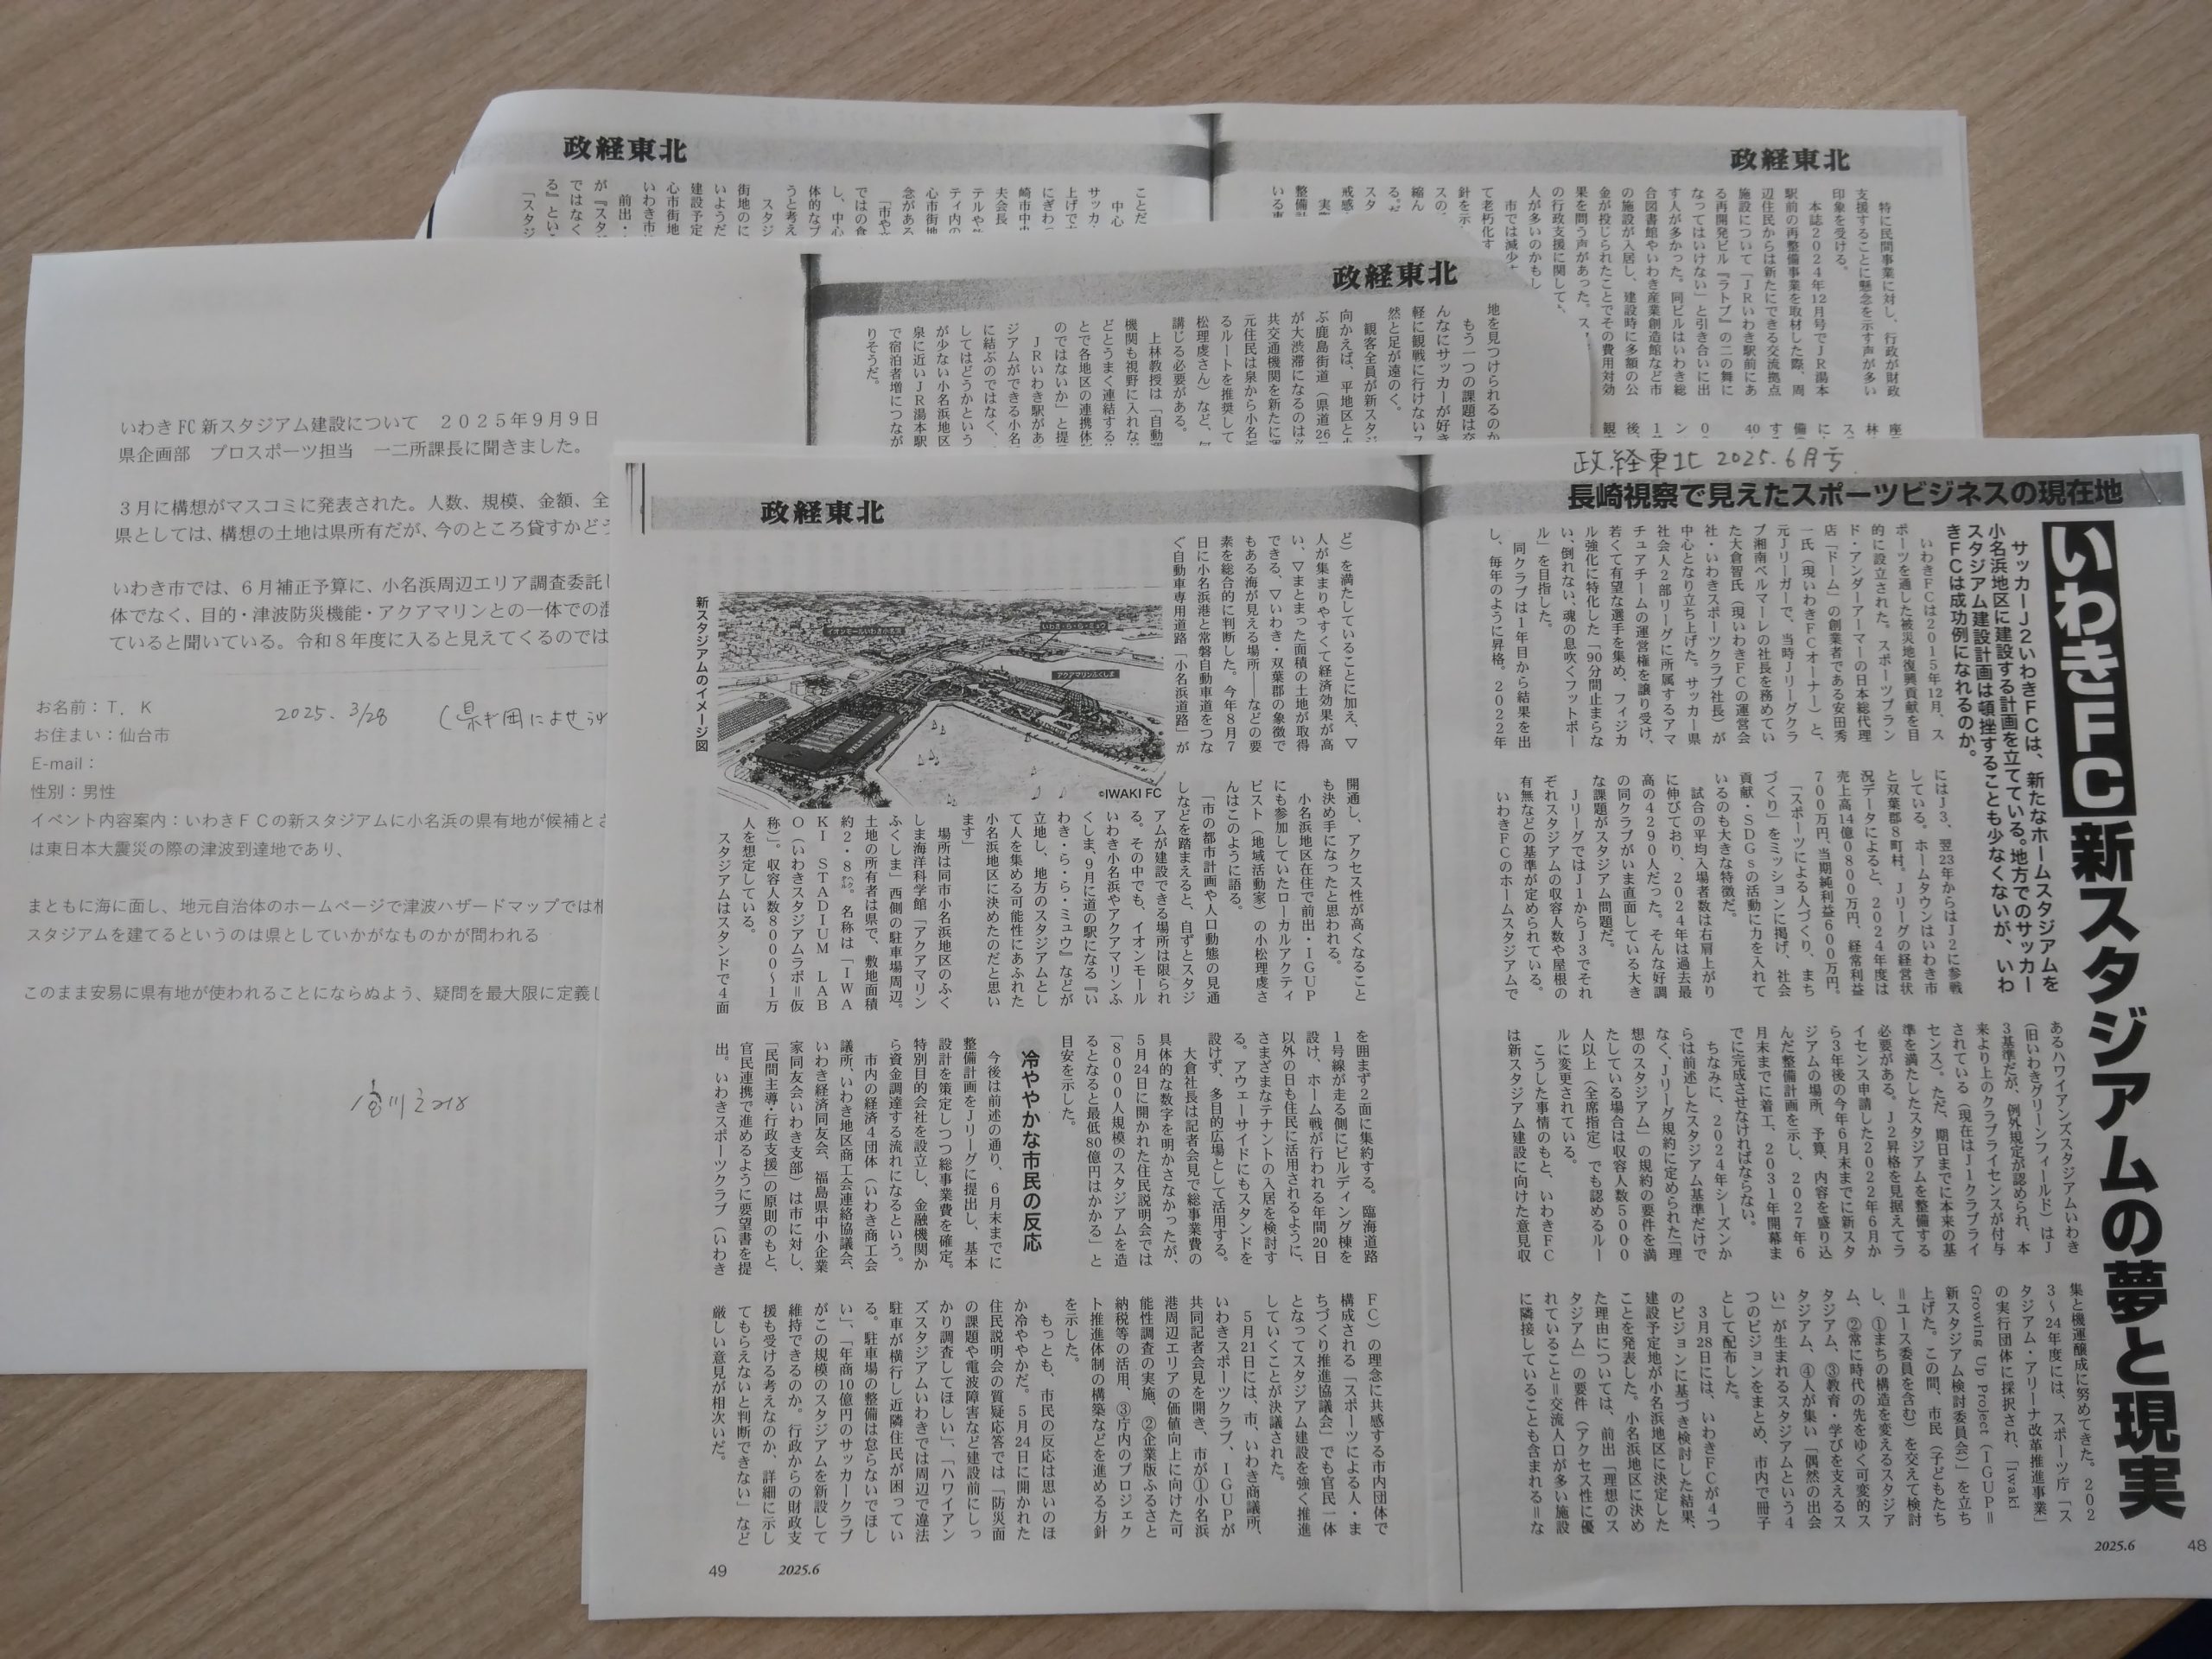 政経東北
政経東北
特に民間事業に対し、行政が財政
支援することに懸念を示す声が多い
印象を受ける。
本誌2024年12月号でJR湯本
駅前の再整備事業を取材した際、周
辺住民からは新たにできる交流拠点
施設について「JRいわき駅前にあ
る再開発ビル『ラトブ』の二の舞に
なってはいけない」と引き合いに出
す人が多かった。同ビルはいわき総
合図書館やいわき産業創造館など市
の施設が入居し、建設時に多額の公
金が投じられたことでその費用対効
果を問う声があった。ス
の行政支援に関して、
人が多いのかもし
市では減少
て老朽化す
針を示
政経東北
地を見つけられるのか
もう一つの課題は交
んなにサッカーが好き
軽に観戦に行けないス
然と足が遠のく。
観客全員が新スタジ
向かえば、平地区と小
ぶ鹿島街道（県道26
が大渋滞になるのは必
共交通機関を新たに運
元住民は泉から小名浜
るルートを推奨して
松理虔さん）など、何
講じる必要がある。
上林教授は「自動運
機関も視野に入れな
どとうまく連結する
とで各地区の連携体制
のではないか」と提
JRいわき駅があ
ジアムができる小名
に結ぶのではなく、
してはどうかという
が少ない小名浜地区
泉に近いJR湯本駅
で宿泊者増につなが
りそうだ。
いわきFC新スタジアム建設について　2025年9月9日
県企画部　プロスポーツ担当　一二所課長に聞きました。
3月に構想がマスコミに発表された。人数、規模、金額、全
県としては、構想の土地は県所有だが、今のところ貸すかどう
いわき市では、6月補正予算に、小名浜周辺エリア調査委託し
体でなく、目的・津波防災機能・アクアマリンとの一体での
ていると聞いている。令和8年度に入ると見えてくるのでは
お名前：T．K
2025. 3/28
お住まい：仙台市
E-mail：
性別：男性
イベント内容案内：いわきFCの新スタジアムに小名浜の県有地が候補とさ
は東日本大震災の際の津波到達地であり、
まともに海に面し、地元自治体のホームページで津波ハザードマップでは相
スタジアムを建てるというのは県としていかがなものかが問われる
このまま安易に県有地が使われることにならぬよう、疑問を最大限に定義し
政経東北 2025.6月号
長崎視察で見えたスポーツビジネスの現在地
いわきFC新スタジアムの夢と現実
サッカーJ2いわきFCは、新たなホームスタジアムを
小名浜地区に建設する計画を立てている。地方でのサッカー
スタジアム建設計画は頓挫することも少なくないが、いわ
きFCは成功例になれるのか。
いわきFCは2015年12月、ス
ポーツを通した被災地復興貢献を目
的に設立された。スポーツブラン
ド・アンダーアーマーの日本総代理
店「ドーム」の創業者である安田秀
一氏（現いわきFCオーナー）と、
元Jリーガーで、当時Jリーグクラ
ブ湘南ベルマーレの社長を務めてい
た大倉智氏（現いわきFCの運営会
社・いわきスポーツクラブ社長）が
中心となり立ち上げた。サッカー県
社会人2部リーグに所属するアマ
チュアチームの運営権を譲り受け、
若くて有望な選手を集め、フィジカ
ル強化に特化した「90分間止まらな
い、倒れない、魂の息吹くフットボー
ル」を目指した。
同クラブは1年目から結果を出
し、毎年のように昇格。2022年
にはJ3、翌23年からはJ2に参戦
している。ホームタウンはいわき市
と双葉郡8町村。Jリーグの経営状
況データによると、2024年度は
売上高14億0800万円、経常利益
700万円、当期純利益600万円。
「スポーツによる人づくり、まち
づくり」をミッションに掲げ、社会
貢献・SDGsの活動に力を入れて
いるのも大きな特徴だ。
試合の平均入場者数は右肩上がり
に伸びており、2024年は過去最
高の4290人だった。そんな好調
の同クラブがいま直面している大き
な課題がスタジアム問題だ。
JリーグではJ1からJ3でそれ
ぞれスタジアムの収容人数や屋根の
有無などの基準が定められている。
いわきFCのホームスタジアムで
あるハワイアンズスタジアムいわき
（旧いわきグリーンフィールド）はJ
3基準だが、例外規定が認められ、本
来より上のクラブライセンスが付与
されている（現在はJ1クラブライ
センス）。ただ、期日までに本来の基
準を満たしたスタジアムを整備する
必要がある。J2昇格を見据えてラ
イセンス申請した2022年6月か
ら3年後の今年6月末までに新スタ
ジアムの場所、予算、内容を盛り込
んだ整備計画を示し、2027年6
月末までに着工、2031年開幕ま
でに完成させなければならない。
ちなみに、2024年シーズンか
らは前述したスタジアム基準だけで
なく、Jリーグ規約に定められた「理
想のスタジアム」の規約の要件を満
たしている場合は収容人数5000
人以上（全席指定）でも認めるルー
ルに変更されている。
こうした事情のもと、いわきFC
は新スタジアム建設に向けた意見収
集と機運醸成に努めてきた。202
3～24年度には、スポーツ庁「ス
タジアム・アリーナ改革推進事業」
の実行団体に採択され、「Iwaki
Growing Up Project（IGUP＝
新スタジアム検討委員会）」を立ち
上げた。この間、市民（子どもたち
＝ユース委員を含む）を交えて検討
し、①まちの構造を変えるスタジア
ム、②常に時代の先をゆく可変的ス
タジアム、③教育・学びを支えるス
タジアム、④人が集い「偶然の出会
い」が生まれるスタジアムという4
つのビジョンをまとめ、市内で冊子
として配布した。
3月28日には、いわきFCが4つ
のビジョンに基づき検討した結果、
建設予定地が小名浜地区に決定した
ことを発表した。小名浜地区に決め
た理由については、前出「理想のス
タジアム」の要件（アクセス性に優
れていること＝交流人口が多い施設
に隣接していることも含まれる＝な
2025.6
48
政経東北
ど）を満たしていることに加え、▽
人が集まりやすくて経済効果が高
い、▽まとまった面積の土地が取得
できる、▽いわき・双葉郡の象徴で
もある海が見える場所――などの要
素を総合的に判断した。今年8月7
日に小名浜港と常磐自動車道をつな
ぐ自動車専用道路「小名浜道路」が
新スタジアムのイメージ図
イオンモールいわき小名浜
いわき・ら・ら・ミュウ
アクアマリンふくしま
©IWAKI FC
開通し、アクセス性が高くなること
も決め手になったと思われる。
小名浜地区在住で前出・IGUP
にも参加していたローカルアクティ
ビスト（地域活動家）の小松理虔さ
んはこのように語る。
「市の都市計画や人口動態の見通
しなどを踏まえると、自ずとスタジ
アムが建設できる場所は限られ
る。その中でも、イオンモール
いわき小名浜やアクアマリンふ
くしま、9月に道の駅になる『い
わき・ら・ら・ミュウ』などが
立地し、地方のスタジアムとし
て人を集める可能性にあふれた
小名浜地区に決めたのだと思い
ます」
場所は同市小名浜地区のふく
しま海洋科学館「アクアマリン
ふくしま」西側の駐車場周辺。
土地の所有者は県で、敷地面積
約2・8㌶。名称は「IWA
KI STADIUM LAB
O（いわきスタジアムラボ＝仮
称）。収容人数8000～1万
人を想定している。
スタジアムはスタンドで4面
を囲まず2面に集約する。臨海道路
1号線が走る側にビルディング棟を
設け、ホーム戦が行われる年間20日
以外の日も住民に活用されるように、
さまざまなテナントの入居を検討す
る。アウェーサイドにもスタンドを
設けず、多目的広場として活用する。
大倉社長は記者会見で総事業費の
具体的な数字を明かさなかったが、
5月24日に開かれた住民説明会では
「8000人規模のスタジアムを造
るとなると最低80億円はかかる」と
目安を示した。
冷ややかな市民の反応
今後は前述の通り、6月末までに
整備計画をJリーグに提出し、基本
設計を策定しつつ総事業費を確定。
特別目的会社を設立し、金融機関か
ら資金調達する流れになるという。
市内の経済4団体（いわき商工会
議所、いわき地区商工会連絡協議会、
いわき経済同友会、福島県中小企業
家同友会いわき支部）は市に対し、
「民間主導・行政支援」の原則のもと、
官民連携で進めるように要望書を提
出。いわきスポーツクラブ（いわき
FC）の理念に共感する市内団体で
構成される「スポーツによる人・ま
ちづくり推進協議会」でも官民一体
となってスタジアム建設を強く推進
していくことが決議された。
5月21日には、市、いわき商議所、
いわきスポーツクラブ、IGUPが
共同記者会見を開き、市が①小名浜
港周辺エリアの価値向上に向けた可
能性調査の実施、②企業版ふるさと
納税等の活用、③庁内のプロジェク
ト推進体制の構築などを進める方針
を示した。
もっとも、市民の反応は思いのほ
か冷ややかだ。5月24日に開かれた
住民説明会の質疑応答では「防災面
の課題や電波障害など建設前にしっ
かり調査してほしい」、「ハワイアン
ズスタジアムいわきでは周辺で違法
駐車が横行し近隣住民が困ってい
る。駐車場の整備は怠らないでほし
い」、「年商10億円のサッカークラブ
がこの規模のスタジアムを新設して
維持できるのか。行政からの財政支
援も受ける考えなのか、詳細に示し
てもらえないと判断できない」など
厳しい意見が相次いだ。
49
2025.6